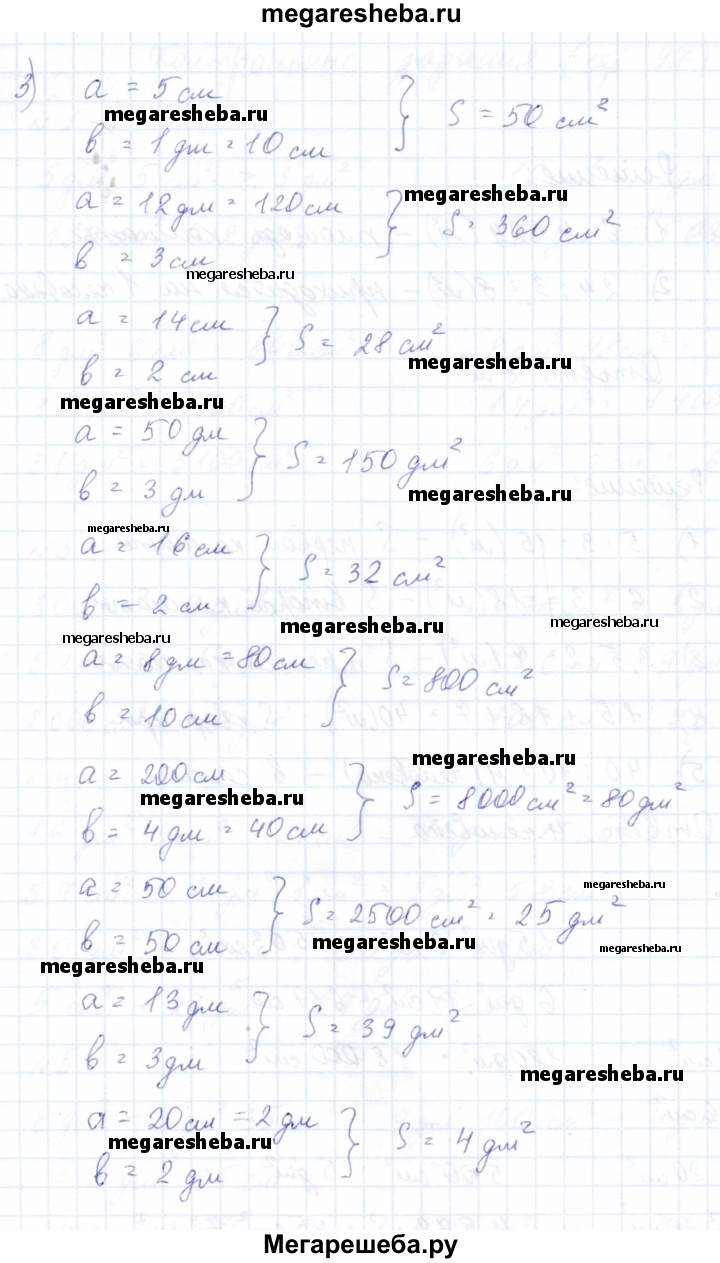 megaresheba.ru
3) a = 5 см
megaresheba.ru
в = 1 дм = 10 см } S = 50 см²
a = 12 дм = 120 см
megaresheba.ru
в = 3 см } S = 360 см²
megaresheba.ru
a = 14 см
в = 2 см } S = 28 см²
megaresheba.ru
megaresheba.ru
a = 50 дм
в = 3 дм } S = 150 дм²
megaresheba.ru
megaresheba.ru
a = 16 см
в = 2 см } S = 32 см²
megaresheba.ru
megaresheba.ru
megaresheba.ru
a = 8 дм = 80 см
в = 10 см } S = 800 см²
megaresheba.ru
a = 200 см
megaresheba.ru
в = 4 дм = 40 см } S = 8000 см² = 80 дм²
a = 50 см
megaresheba.ru
в = 50 см } S = 2500 см² = 25 дм²
megaresheba.ru
megaresheba.ru
megaresheba.ru
a = 13 дм
в = 3 дм } S = 39 дм²
megaresheba.ru
a = 20 см = 2 дм
megaresheba.ru
в = 2 дм } S = 4 дм²
Мегарешеба.ру